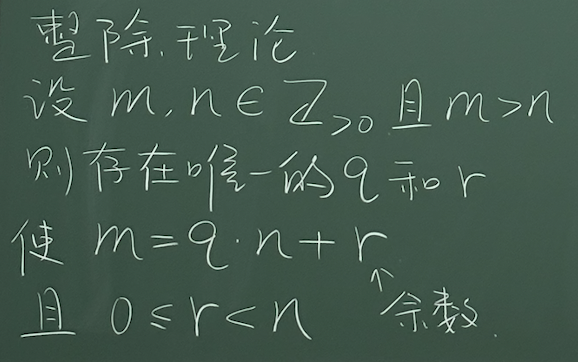 整除理论
设 m, n ∈ Z>0 且 m>n
则存在唯一的 q 和 r
使 m = q·n + r
且 0 ≤ r < n ↑余数.